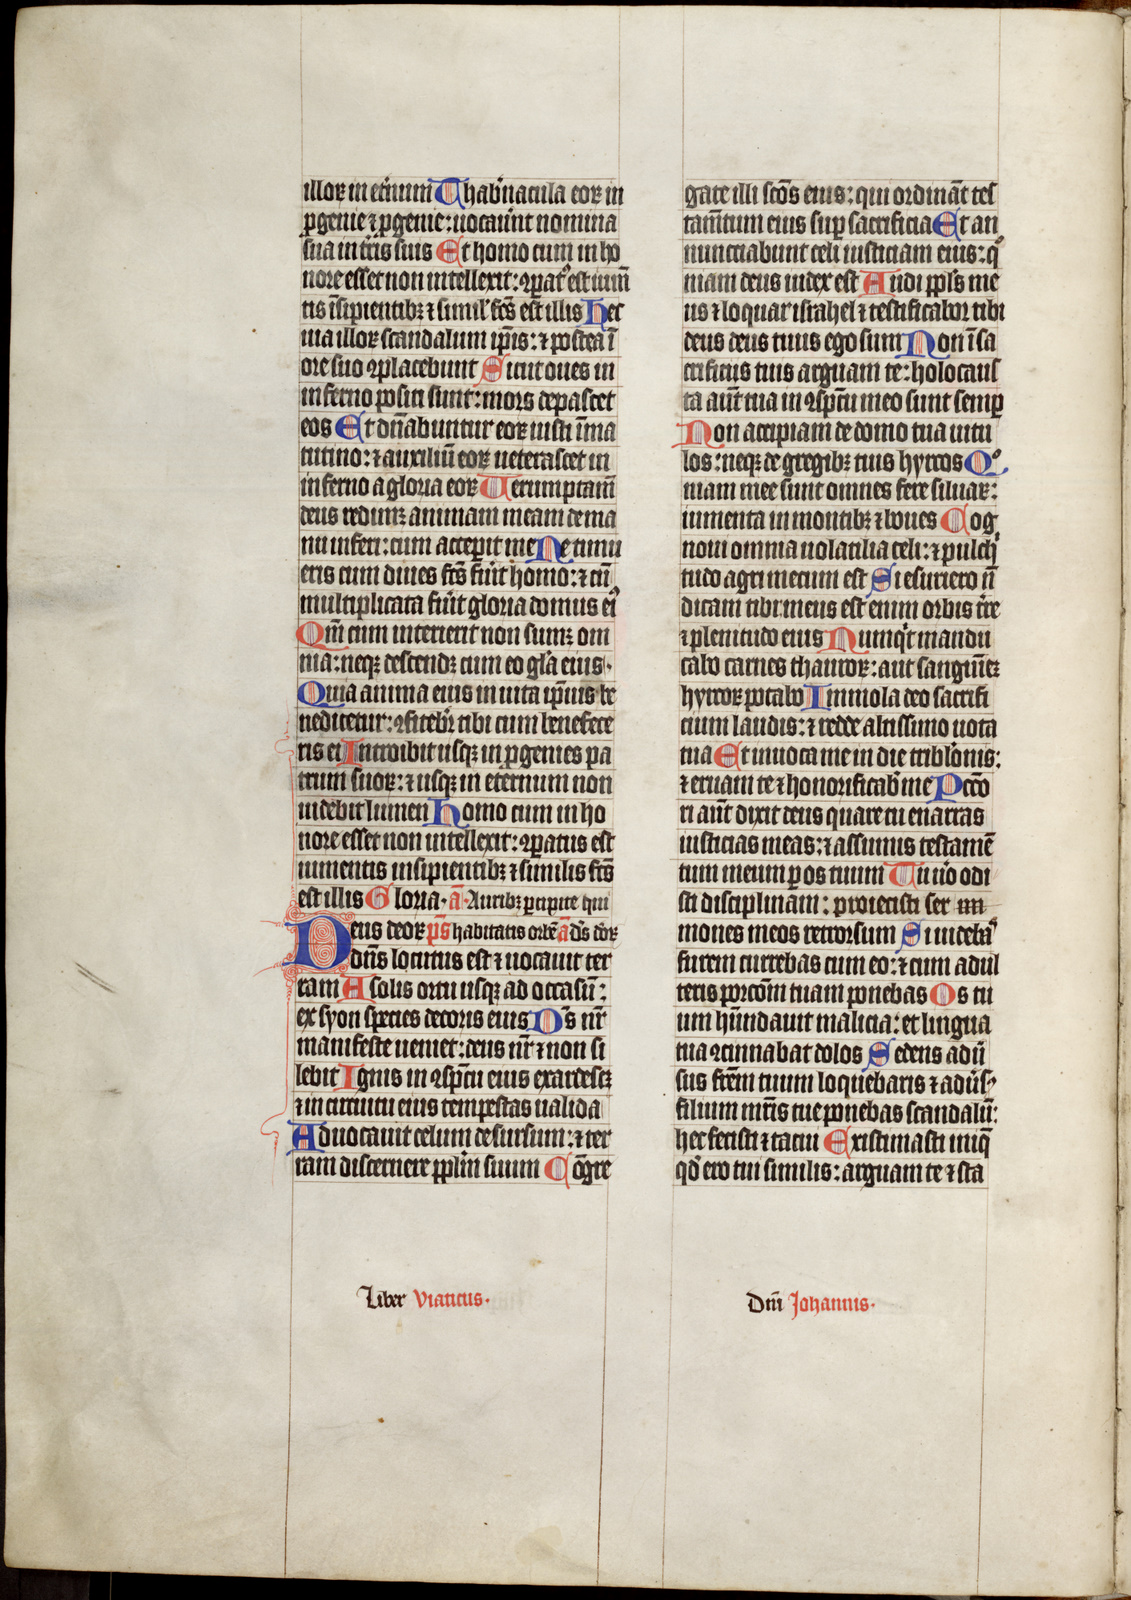 illoꝝ in etͤnum Thabͥnacula eoꝝ in
ꝓgenie ⁊ ꝓgenie: uocauͤnt nomina
sua in tͤris suis Et homo cum in ho
nore esset non intellexit: ꝯparatꝰ est iumē
tis īsipientibꝫ ⁊ similꝭ fc̄s est illis Hec
uia illoꝝ scandalum ip̄is: ⁊ postea ī
ore suo ꝯplacebunt Sicut oues in
inferno positi sunt: mors depascet
eos Et dn̄abuntur eoꝝ iusti ī ma
tutino: ⁊ auxiliū eoꝝ ueterascet in
inferno a gloria eoꝝ Uerumptamē
deus redimꝫ animam meam de ma
nu inferi: cum acceperit me Ne timu
eris cum diues fc̄s fūit homo: ⁊ cū
multiplicata fūit gloria domus eiꝰ
Qm̄ cum interierit non sumꝫ om
nia: neqꝫ descendꝫ cum eo gl̄a eius.
Quia anima eius in uita ip̄ius be
nedicetur: ꝯfitebͥr tibi cum benefece
ris ei Introibit usqꝫ in ꝓgenies pa
trum suoꝝ: ⁊ usqꝫ in eternum non
uidebit lumen Homo cum in ho
nore esset non intellexit: ꝯparatus est
iumentis insipientibꝫ ⁊ similis fc̄s
est illis Gloria. a̅. Auribꝫ ꝑcipite qui
Deus deoꝝ p̄s habitatis orbē a̅ ds̄ deoꝝ
dn̄s locutus est ⁊ uocauit ter
ram A solis ortu usqꝫ ad occasū:
ex syon species decoris eius Ds̄ nr̄
manifeste ueniet: deus nr̄ ⁊ non si
lebit Ignis in ꝯsp̄cu eius exardescꝫ
⁊ in circuitu eius tempestas ualida
Aduocauit celum desursum: ⁊ ter
ram discernere ꝓpl̄m suum Cōgre
gate illi sc̄os eius: qui ordināt tes
tam̄tum eius sup̄ sacrificia Et an
nunctiabunt celi iusticiam eius: qͦ
niam deus iudex est Audi ꝓpl̄s me
us ⁊ loquar israhel ⁊ testificabor tibi
deus deus tuus ego sum Non ī sa
crificijs tuis arguam te: holocaus
ta aūt tua in ꝯsp̄cu meo sunt semꝑ
Non accipiam de domo tua uitu
los: neqꝫ de gregibꝫ tuis hyrcos Qͦ
niam mee sunt omnes fere siluaꝝ:
iumenta in montibꝫ ⁊ boues Cog
noui omnia uolatilia celi: ⁊ pulchͥ
tudo agri mecum est Si esuriero n̄
dicam tibi: meus est enim orbis tͤre
⁊ plenitudo eius Numqͥt mandu
cabo carnes thauroꝝ: aut sanguinē
hyrcoꝝ potabo Immola deo sacrifi
cium laudis: ⁊ redde altissimo uota
tua Et inuoca me in die tribl̄onis:
⁊ eruam te ⁊ honorificabͥ me Pcc̄o
ri aūt dixit deus quare tu enarras
iusticias meas: ⁊ assumis testamē
tum meum ꝑ os tuum Tu ūo odi
sti disciplinam: proiecisti ser
mones meos retrorsum Si uidebaͣ
furem currebas cum eo: ⁊ cum adul
teris porcōm tuam ponebas Os tu
um hūndauit malicia: et lingua
tua ꝯcinnabat dolos Sedens adū
sus fr̄em tuum loquebaris ⁊ adūs
filium mr̄is tue ponebas scandalū:
hec fecisti ⁊ tacui Existimasti iniqͤ
qd̓ ero tui similis: arguam te ⁊ sta
Liber Viaticus.
Dni̅ Johannis.